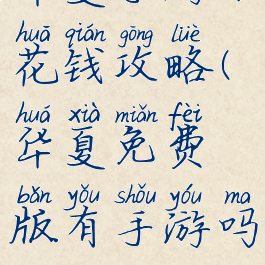 huā qián gōng lüè
花钱攻略(
huá xià miǎn fèi
华夏免费
bǎn yǒu shǒu yóu ma
版有手游吗